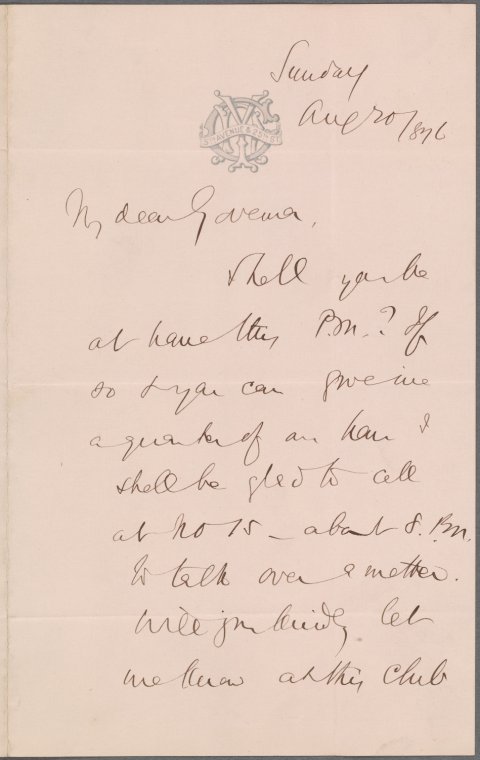 Sunday
Aug 20/1876
5TH AVENUE & 26TH ST
My dear Governor,
Shall you be
at home this P.M.? If
so & you can give me
a quarter of an hour I
shall be glad to call
at No 15 — about 8. P.M.
to talk over a matter.
Will you kindly let
me know at this Club